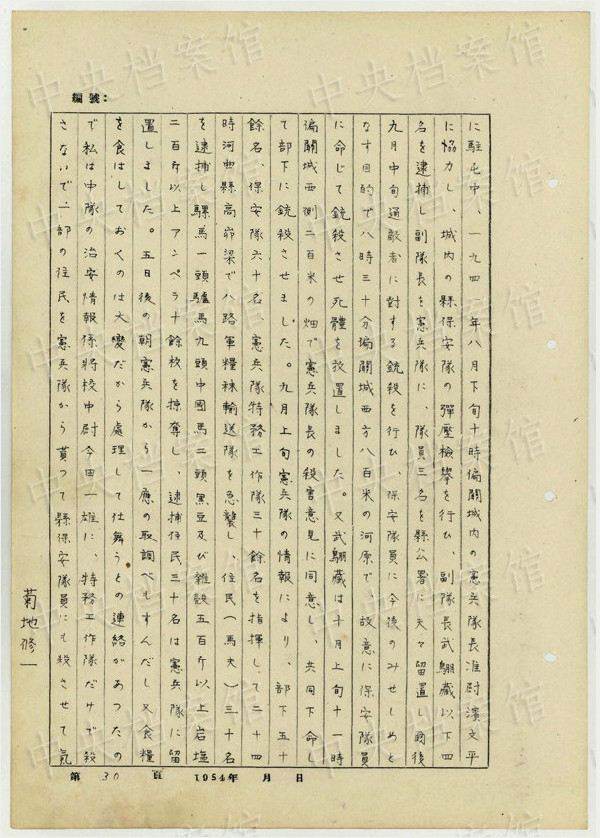 中央档案馆
編號:
に駐屯中、一九四一年八月下旬十時偏關城内の憲兵隊長准尉濱文平
に協力し、城内の縣保安隊の彈壓檢擧を行ひ、副隊長武騆藏以下四
名を逮捕し副隊長を憲兵隊に、隊員三名を縣公署に夫々留置し爾後
九月中旬通敵者に對する銃殺を行ひ、保安隊員に今後のみせしめと
なす目的で八時三十分偏關城西方八百米の河原で、故意に保安隊員
に命じて銃殺させ死體を放置しました。又武騆藏は十月上旬十一時
偏關城西側二百米の畑で憲兵隊長の殺害意見に同意し、共同下命し
て部下に銃殺させました。九月上旬憲兵隊の情報により、部下五十
餘名、保安隊六十名、憲兵隊特務工作隊三十餘名を指揮して二十四
時河曲縣高峁梁で八路軍糧秣輸送隊を急襲し、住民(馬夫)三十名
を逮捕し騾馬一頭驢馬九頭中國馬二頭黑豆及び雜穀五百斤以上岩塩
二百斤以上アンペラ十餘枚を掠奪し、逮捕住民三十名は憲兵隊に留
置しました。五日後の朝憲兵隊から一應の取調べもすんだし又食糧
を食はしておくのは大變だから處理して仕舞うとの連絡があつたの
で私は中隊の治安情報係將校中尉今田一雄に、特務工作隊だけで殺
さないで、一部の住民を憲兵隊から貰つて縣保安隊員にも殺させて気
菊地修一
第 30 頁 1954年 月 日